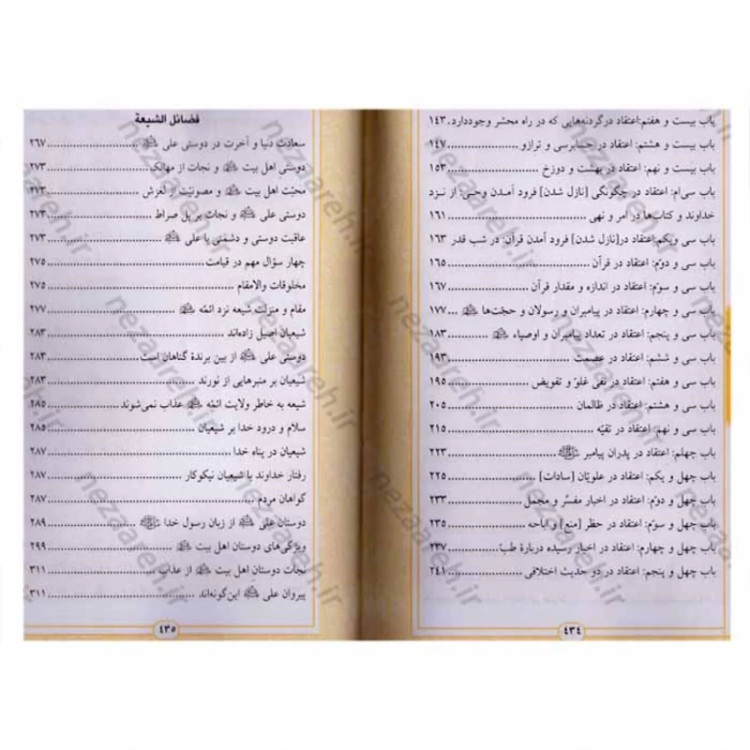 باب بیست و هفتم: اعتقاد درگردنه‌هایی که در راه محشر وجوددارد. ۱۴۳
باب بیست و هشتم: اعتقاد در حسابرسی و ترازو ........ ۱۴۷
باب بیست و نهم: اعتقاد در بهشت و دوزخ ........ ۱۵۳
باب سی‌اُم: اعتقاد در چگونگی [نازل شدن] فرود آمـدن وحـی: از نـزد
خداوند و کتاب‌ها در امر و نهی ........ ۱۶۱
باب سی ویکم: اعتقاد در[نازل شدن] فرود آمدن قرآن: در شب قدر ۱۶۳
باب سی و دوّم: اعتقاد در قرآن ........ ۱۶۵
باب سی و سوّم: اعتقاد در اندازه و مقدار قرآن ........ ۱۶۷
باب سی و چهارم: اعتقاد در پیامبران و رسولان و حجّت‌ها ........ ۱۷۷
باب سی و پنجم: اعتقاد در تعداد پیامبران و اوصیاء ........ ۱۸۳
باب سی و ششم: اعتقاد در عصمت ........ ۱۹۳
باب سی و هفتم: اعتقاد در نفی غلوّ و تفویض ........ ۱۹۵
باب سی و هشتم: اعتقاد در ظالمان ........ ۲۰۵
باب سی و نهم: اعتقاد در تقیّه ........ ۲۱۵
باب چهلم: اعتقاد در پدران پیامبر ........ ۲۲۳
باب چهل و یکم: اعتقاد در علویّان [سادات] ........ ۲۲۵
باب چهل و دوّم: اعتقاد در اخبار مفسَّر و مجمل ........ ۲۳۳
باب چهل و سوّم: اعتقاد در حظر [منع] و اباحه ........ ۲۳۵
باب چهل و چهارم: اعتقاد در اخبار رسیده دربارۀ طبّ ........ ۲۳۷
باب چهل و پنجم: اعتقاد در دو حدیث اختلافی ........ ۲۴۱
۴۳۴
فضائل الشیعة
سعادت دنیا و آخرت در دوستی علی ........ ۲۶۷
دوستی اهل بیت و نجات از مهالک ........ ۲۷۳
محبّت اهل بیت و مصونیّت از لغزش ........ ۲۷۳
دوستی علی و نجات بر پل صراط ........ ۲۷۳
عاقبت دوستی و دشمنی با علی ........ ۲۷۳
چهار سؤال مهم در قیامت ........ ۲۷۵
مخلوقات والامقام ........ ۲۷۵
مقام و منزلت شیعه نزد ائمّه ........ ۲۷۷
شیعیان اصیل زاده‌اند ........ ۲۸۳
دوستی علی از بین برندۀ گناهان است ........ ۲۸۳
شیعیان بر منبرهایی از نورند ........ ۲۸۳
شیعه به خاطر ولایت ائمّه عذاب نمی‌شوند ........ ۲۸۵
سلام و درود خدا بر شیعیان ........ ۲۸۵
شیعیان در پناه خدا ........ ۲۸۷
رفتار خداوند با شیعیان نیکوکار ........ ۲۸۷
گواهان مردم ........ ۲۸۷
دوستان علی از زبان رسول خدا ........ ۲۸۹
ویژگی‌های دوستان اهل بیت ........ ۲۹۹
نجات دوستان اهل بیت از عذاب ........ ۳۱۱
پیروان علی این‌گونه‌اند ........ ۳۱۱
۴۳۵
nezaareh.ir